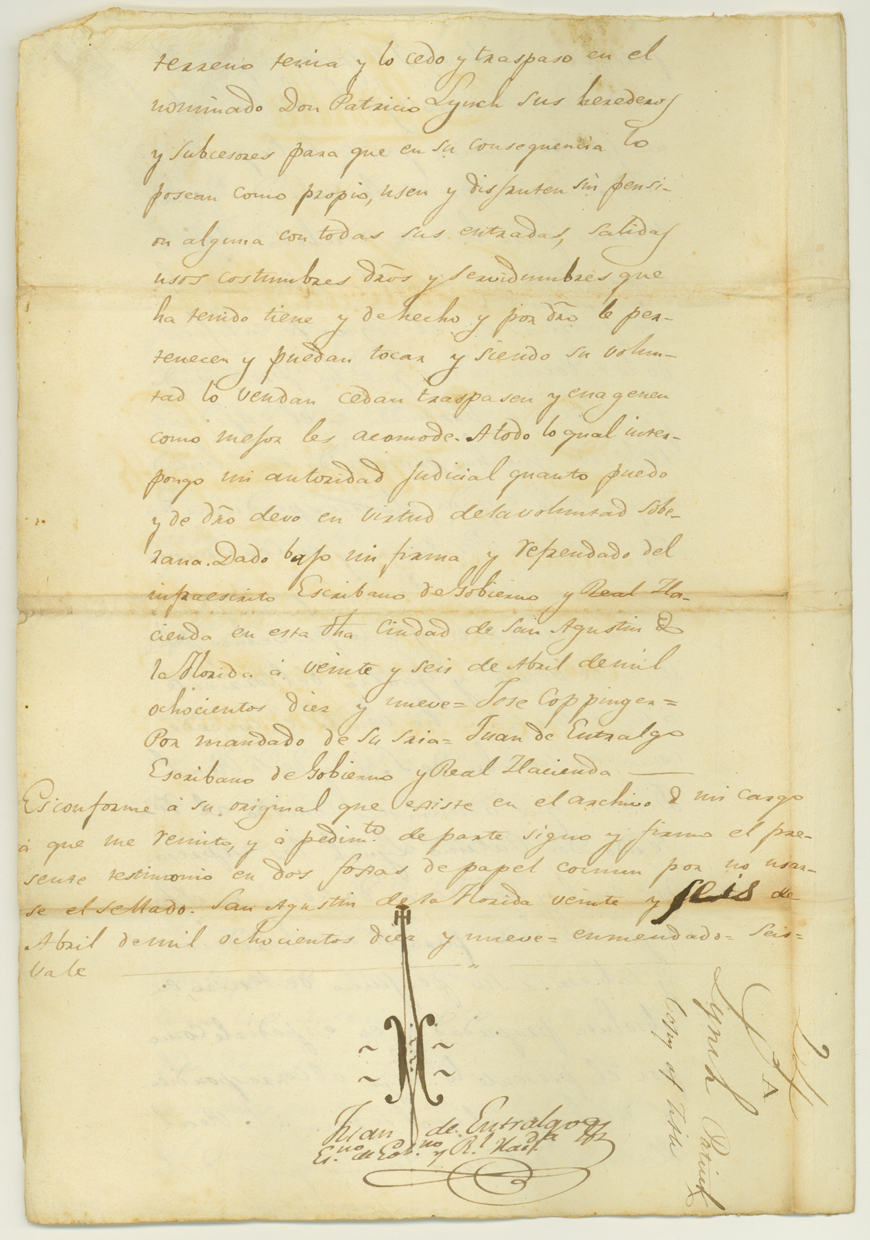 terreno tenia y lo cedo y traspaso en el
nominado Don Patricio Lynch sus herederos
y subcesores para que en su consequencia lo
posean como propio, usen y disfruten sin pensi-
on alguna con todas sus entradas, salidas
usos costumbres dr̃os y servidumbres que
ha tenido tiene y de hecho y por dr̃o le per-
tenecen y puedan tocar y siendo su volun-
tad lo vendan cedan traspasen y enagenen
como mejor les acomode. A todo lo qual inter-
pongo mi autoridad judicial quanto puedo
y de dr̃o devo en virtud de la voluntad sobe-
rana. Dado bajo mi firma y refrendado del
infraescrito Escribano de Gobierno y Real Ha-
cienda en esta dha Ciudad de San Agustin de
la Florida á veinte y seis de Abril de mil
ochocientos diez y nueve= Jose Coppinger=
Por mandado de Su Sria= Juan de Entralgo
Escribano de Gobierno y Real Hacienda —
Es conforme á su original que existe en el archivo de mi cargo
á que me remito, y á pedimto. de parte signo y firmo el pre-
sente testimonio en dos fojas de papel comun por no usar-
se el sellado. San Agustin de la Florida veinte y seis de
Abril de mil ochocientos diez y nueve= enmendado= Seis=
Vale
Juan de Entralgo
Esno. de Gobno. y Rl. Hacda
Lynch Patrick
Copy of Title